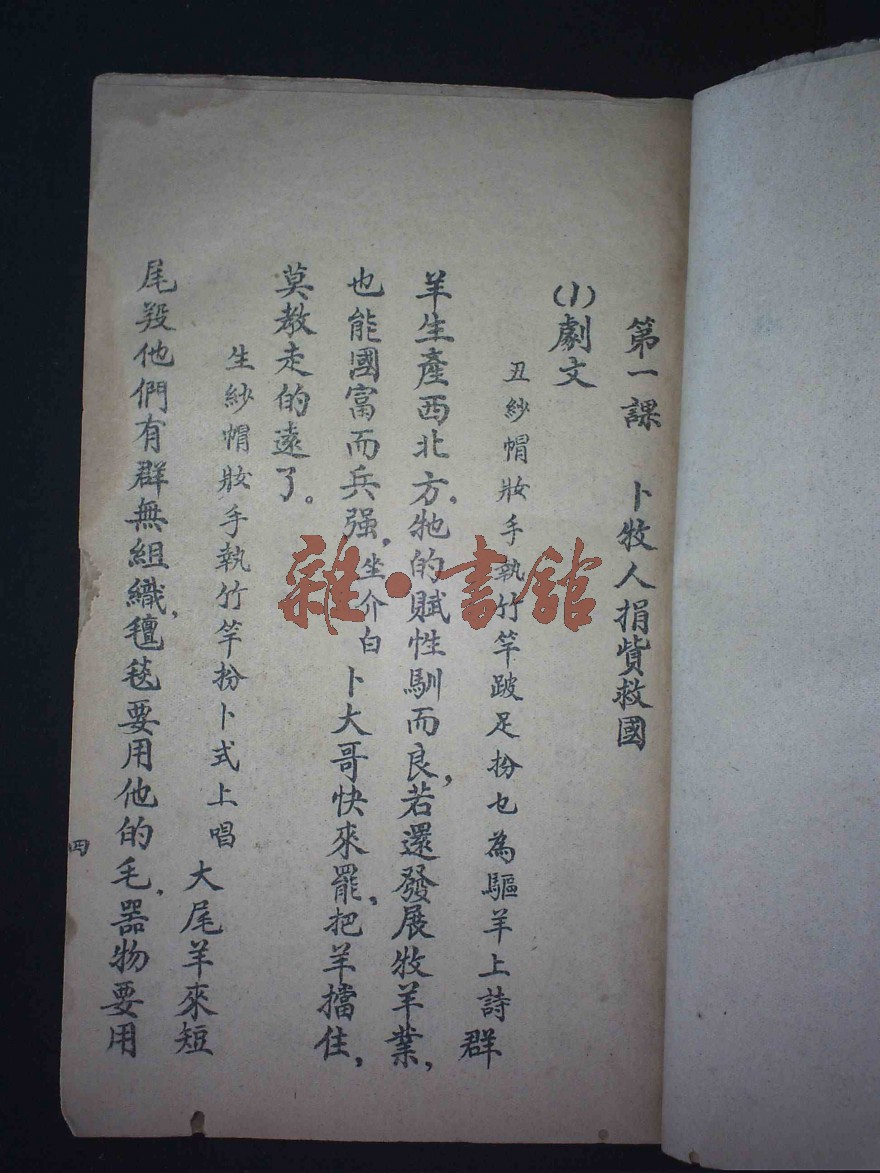 第一課　卜牧人捐貲救國
(1)劇文
丑紗帽妝手執竹竿跛足扮乜為驅羊上詩 群
羊生產西北方，牠的賦性馴而良，若還發展牧羊業，
也能國富而兵强，坐介白 卜大哥快來罷，把羊擋住，
莫教走的遠了。
生紗帽妝手執竹竿扮卜式上唱 大尾羊來短
尾羖他們有群無組織，氊毯要用他的毛，器物要用
四
雜·書館